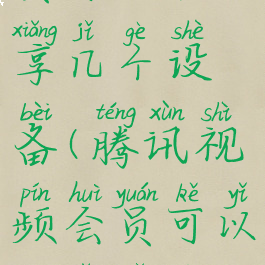 xiǎng jǐ gè shè
享几个设
bèi téng xùn shì
备(腾讯视
pín huì yuán kě yǐ
频会员可以